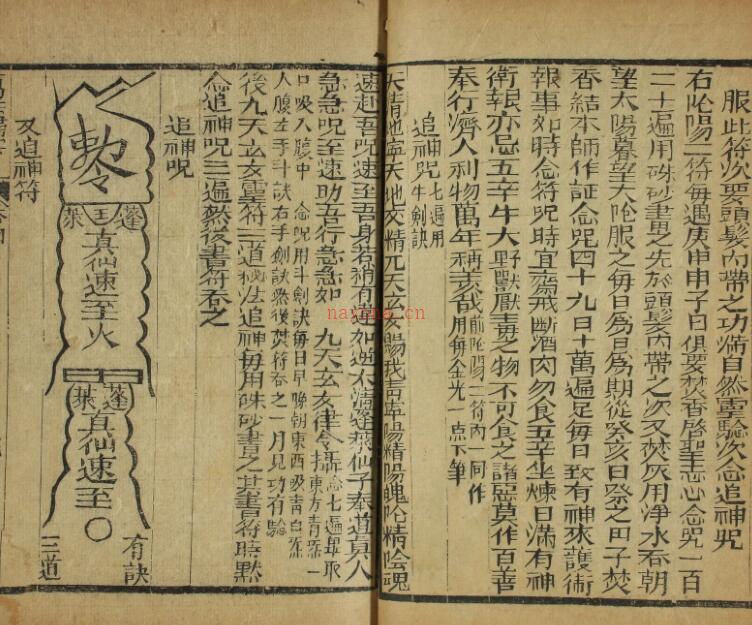 服此符次要頭髮內帶之功滿自然靈驗次念追神咒
右吣陽二符每遇庚申甲子日俱要焚香啓聖志心念咒一百
二十遍用硃砂畫之先於頭髮內帶之次又焚灰用淨水吞朝
望太陽暮望天吣服之每日為日為期從癸亥日祭之甲子焚
香結本師作証念咒四十九日十萬遍足每日致有神來護術
報事如時念符咒時宜齋戒斷酒肉勿食五辛坐煉日滿有神
衛報亦忌五辛牛犬野獸厭毒之物不可食之諸惡莫作百善
奉行濟人利物萬年稱羨哉前吣陽二符內一同作用每金光一点下筆
追神咒七遍用牛劍訣
天清地寧天地交精元天玄女賜我青寧陽精陽魄吣精陰魂
速赴吾咒速至吾身若稍有違如逆太清追飛仙子奉道真人
急急咒至速助吾行急急如 九天玄女律令攝念七遍每取東方青炁一
口吸入腹中 念咒用斗劍訣每日早晚朝東西吸青白炁
人腹左手斗訣右手劍訣然後焚符吞之一月見功有驗
後九天玄女靈符三道秘法追神每用硃砂畫之其書符時默
念追神咒三遍然後書符吞之
追神咒
敕令
蓬王萊
真仙速至火
蓬萊
真仙速至
有訣
三道
又追神符
nayona.cn